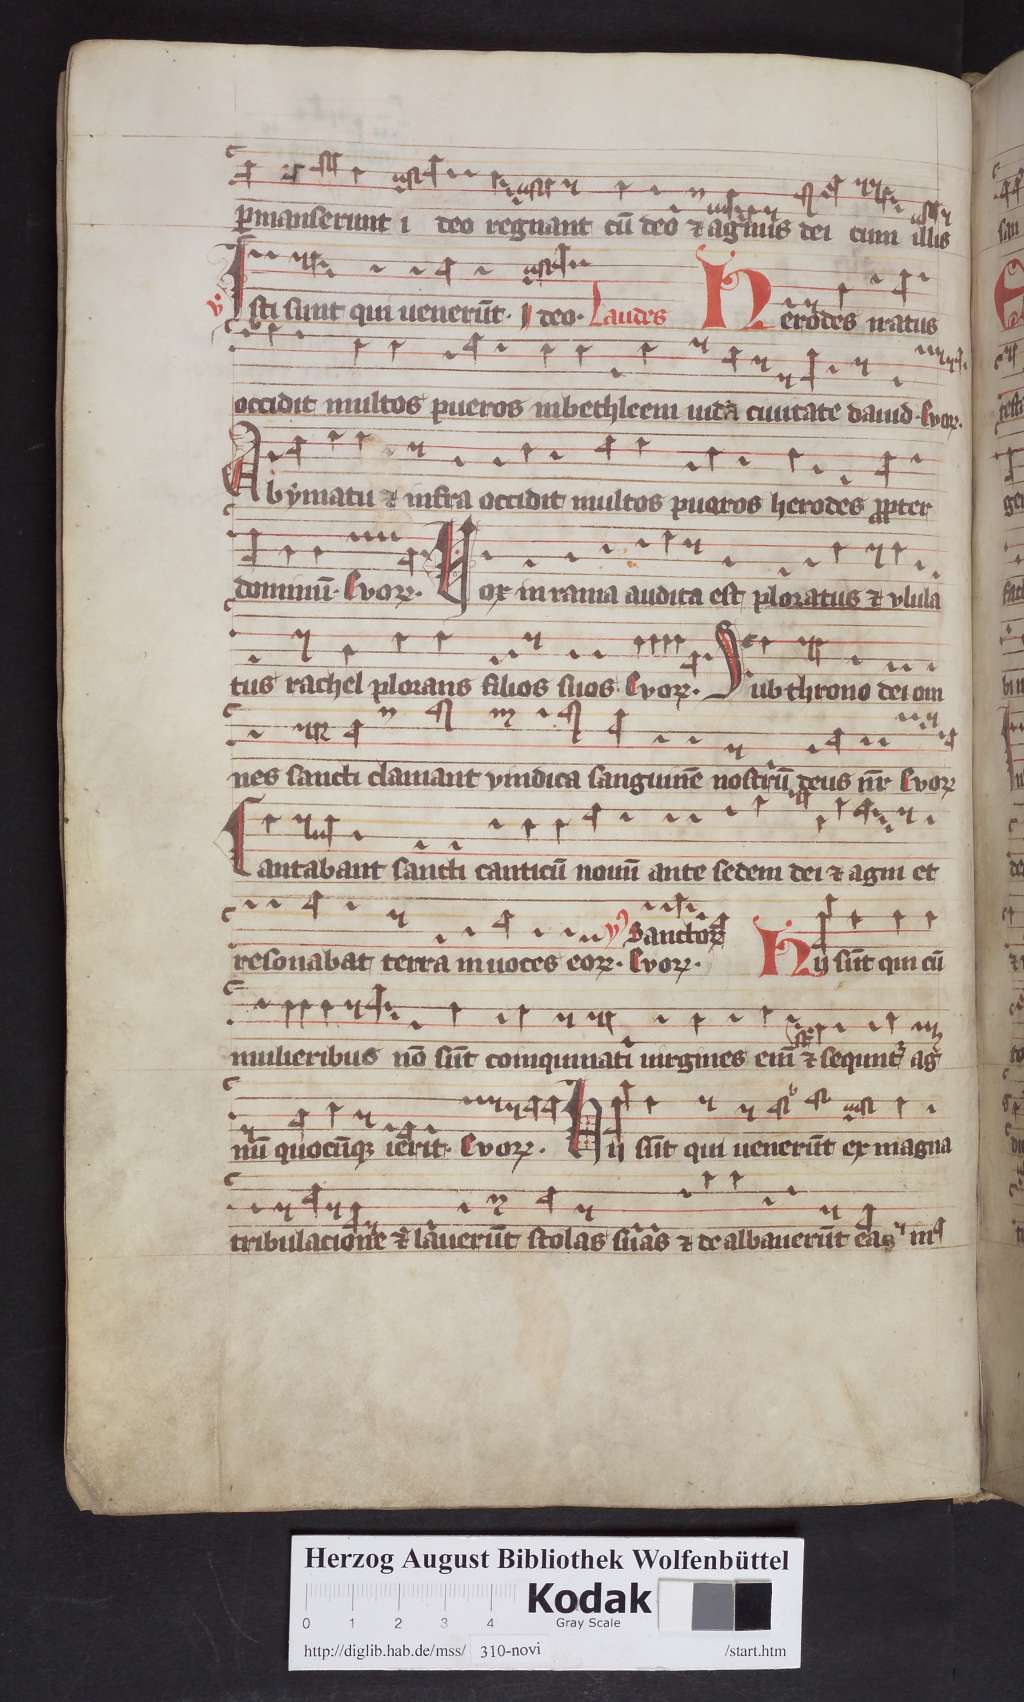 ꝑmanserunt i deo regnant cū deo ⁊ agmīs dei cum illis
℣ Isti sunt qui uenerūt. I deo. Laudes Herodes iratus
occidit multos pueros inbethleem iuda ciuitate dauid. Evoꝝ.
A bymatu ⁊ infra occidit multos pueros herodes ꝓpter
dominū. Evoꝝ. Vox in rama audita est ploratus ⁊ vlula
tus rachel plorans filios suos Evoꝝ. Sub throno dei om
nes sancti clamant vindica sanguinē nostrū deus nr̄ Evoꝝ
Cantabant sancti canticū nouū ante sedem dei ⁊ agni et
resonabat terra in uoces eoꝝ. Evoꝝ. p̄s Sanctoꝝ Hij sūt qui cū
mulieribus nō sūt coinquinati uirgines eni ⁊ sequnt᷑ ag
nū quocūqꝫ ierit. Evoꝝ. Hij sūt qui uenerūt ex magna
tribulacione ⁊ lauerūt stolas suas ⁊ de albauerūt eas in
Herzog August Bibliothek Wolfenbüttel
0 1 2 3 4 Kodak
Gray Scale
http://diglib.hab.de/mss/ 310-novi /start.htm